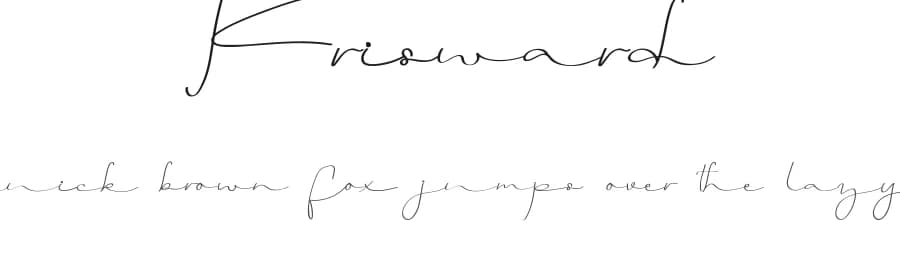 Krisward
uick brown fox jumps over the lazy